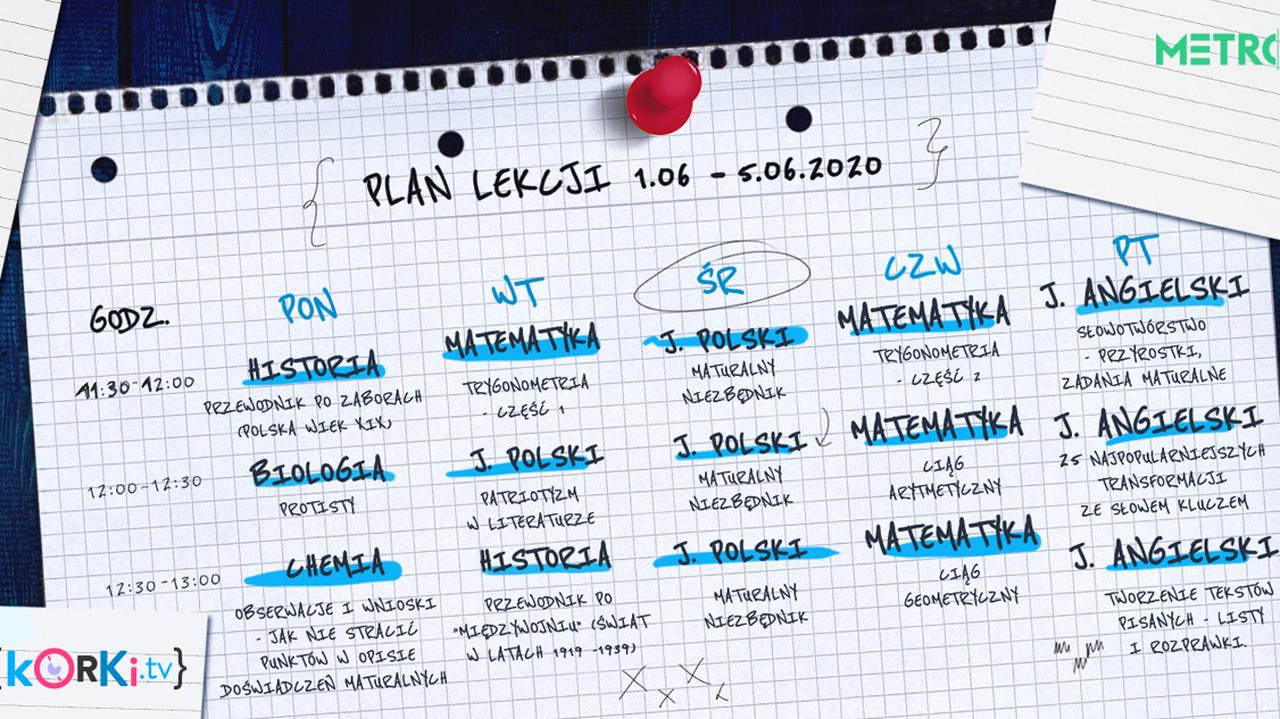 METRO
PLAN LEKCJI 1.06 - 5.06.2020
GODZ.
PON
WT
ŚR
CZW
PT
11:30-12:00
HISTORIA
PRZEWODNIK PO ZABORACH
(POLSKA WIEK XIX)
MATEMATYKA
TRYGONOMETRIA
- CZĘŚĆ 1
J. POLSKI
MATURALNY
NIEZBĘDNIK
MATEMATYKA
TRYGONOMETRIA
- CZĘŚĆ 2
J. ANGIELSKI
SŁOWOTWÓRSTWO
- PRZYROSTKI,
ZADANIA MATURALNE
12:00-12:30
BIOLOGIA
PROTISTY
J. POLSKI
PATRIOTYZM
W LITERATURZE
J. POLSKI
MATURALNY
NIEZBĘDNIK
MATEMATYKA
CIĄG
ARYTMETYCZNY
J. ANGIELSKI
25 NAJPOPULARNIEJSZYCH
TRANSFORMACJI
ZE SŁOWEM KLUCZEM
12:30-13:00
CHEMIA
OBSERWACJE I WNIOSKI
- JAK NIE STRACIĆ
PUNKTÓW W OPISIE
DOŚWIADCZEŃ MATURALNYCH
HISTORIA
PRZEWODNIK PO
"MIĘDZYWOJNIU" (ŚWIAT
W LATACH 1919 -1939)
J. POLSKI
MATURALNY
NIEZBĘDNIK
MATEMATYKA
CIĄG
GEOMETRYCZNY
J. ANGIELSKI
TWORZENIE TEKSTÓW
PISANYCH - LISTY
I ROZPRAWKI.
{KORKi.tv}